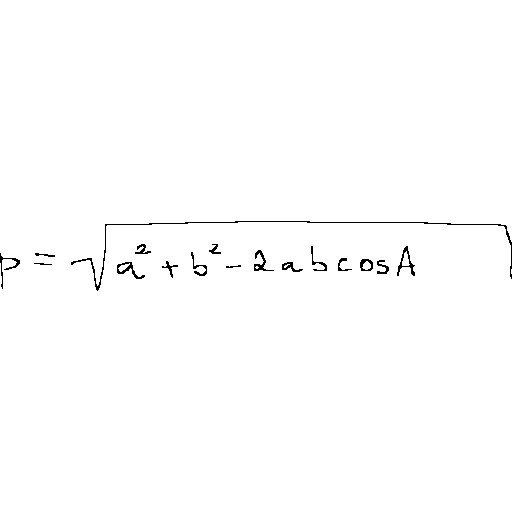 p = √(a² + b² - 2abcosA)